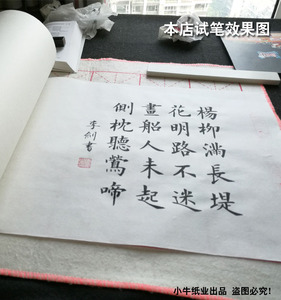 本店试笔效果图
楊柳滿長堤
花明路不迷
畫船人未起
側枕聽鶯啼
小牛纸业出品 盗图必究!